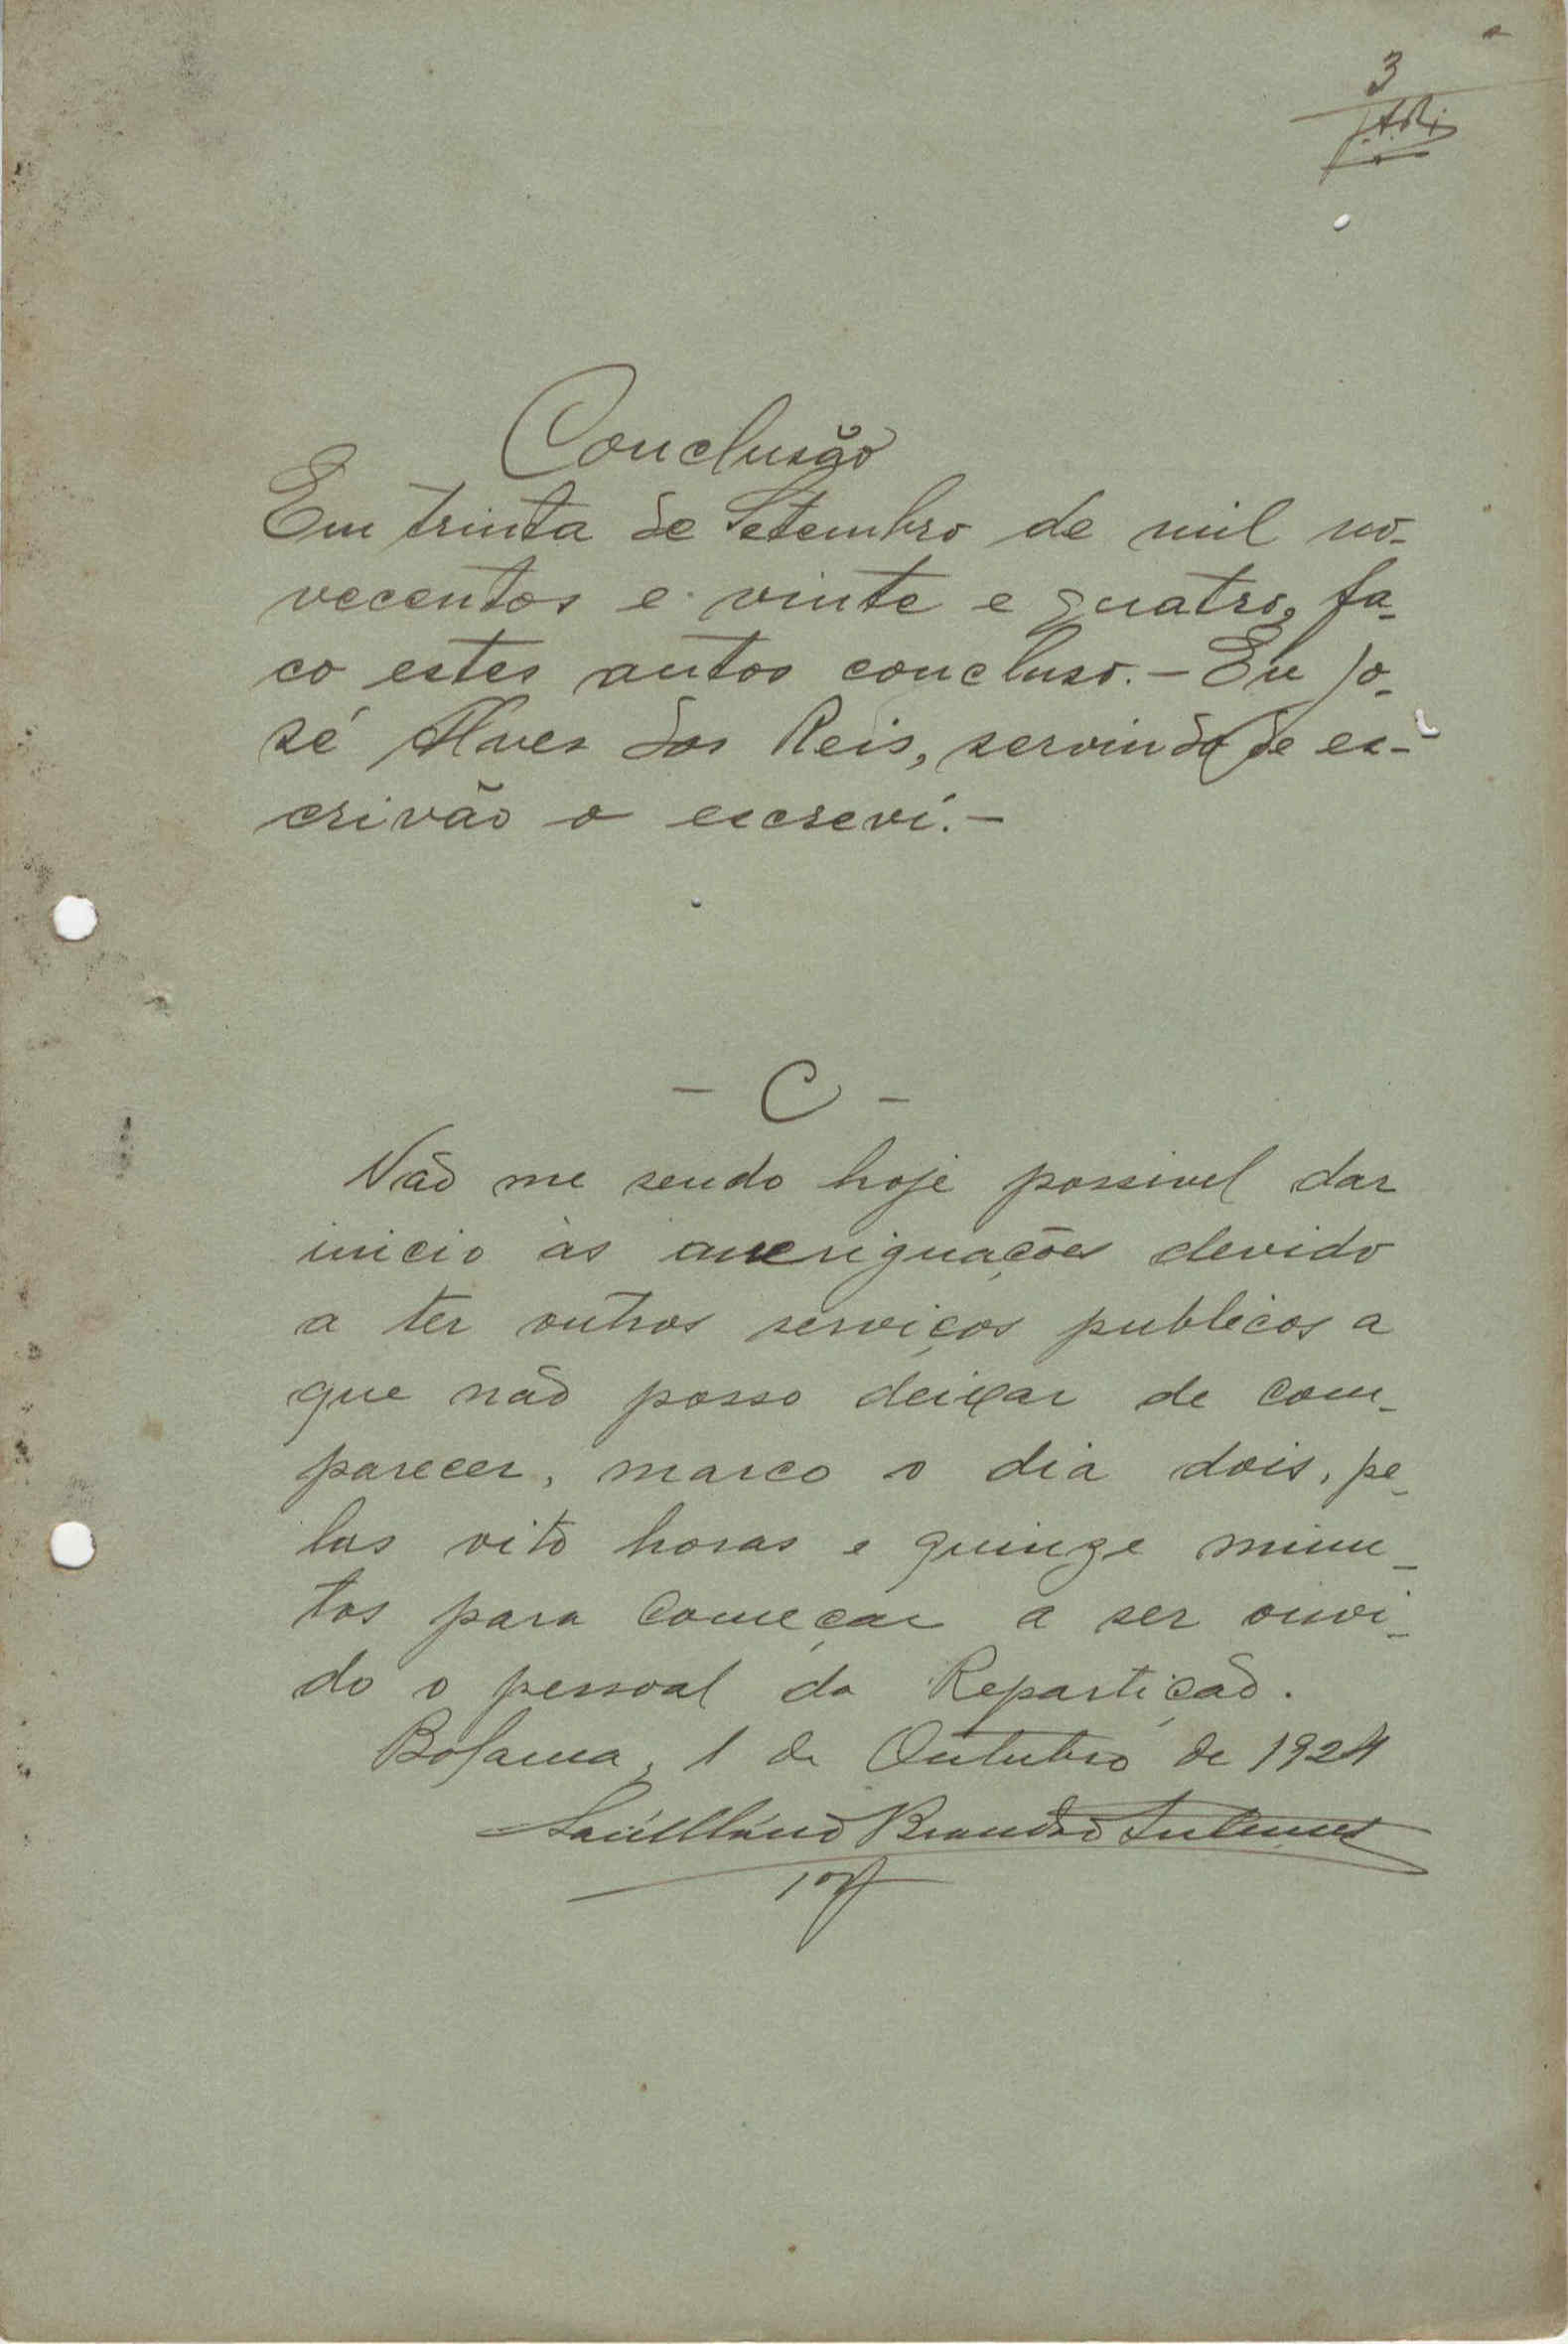 3
Conclusão
Em trinta de Setembro de mil no-
vecentos e vinte e quatro, fa-
co estes autos concluso. - Eu Jo-
sé Alves dos Reis, servindo de es-
crivão o escreví. -
- C -
Não me sendo hoje possivel dar
inicio às averiguações devido
a ter outros serviços publicos a
que não posso deixar de com-
parecer, marco o dia dois, pe-
las oito horas e quinze minu-
tos para começar a ser ouvi-
do o pessoal da Repartição.
Bolama, 1 de Outubro de 1924
Brandão Antunes